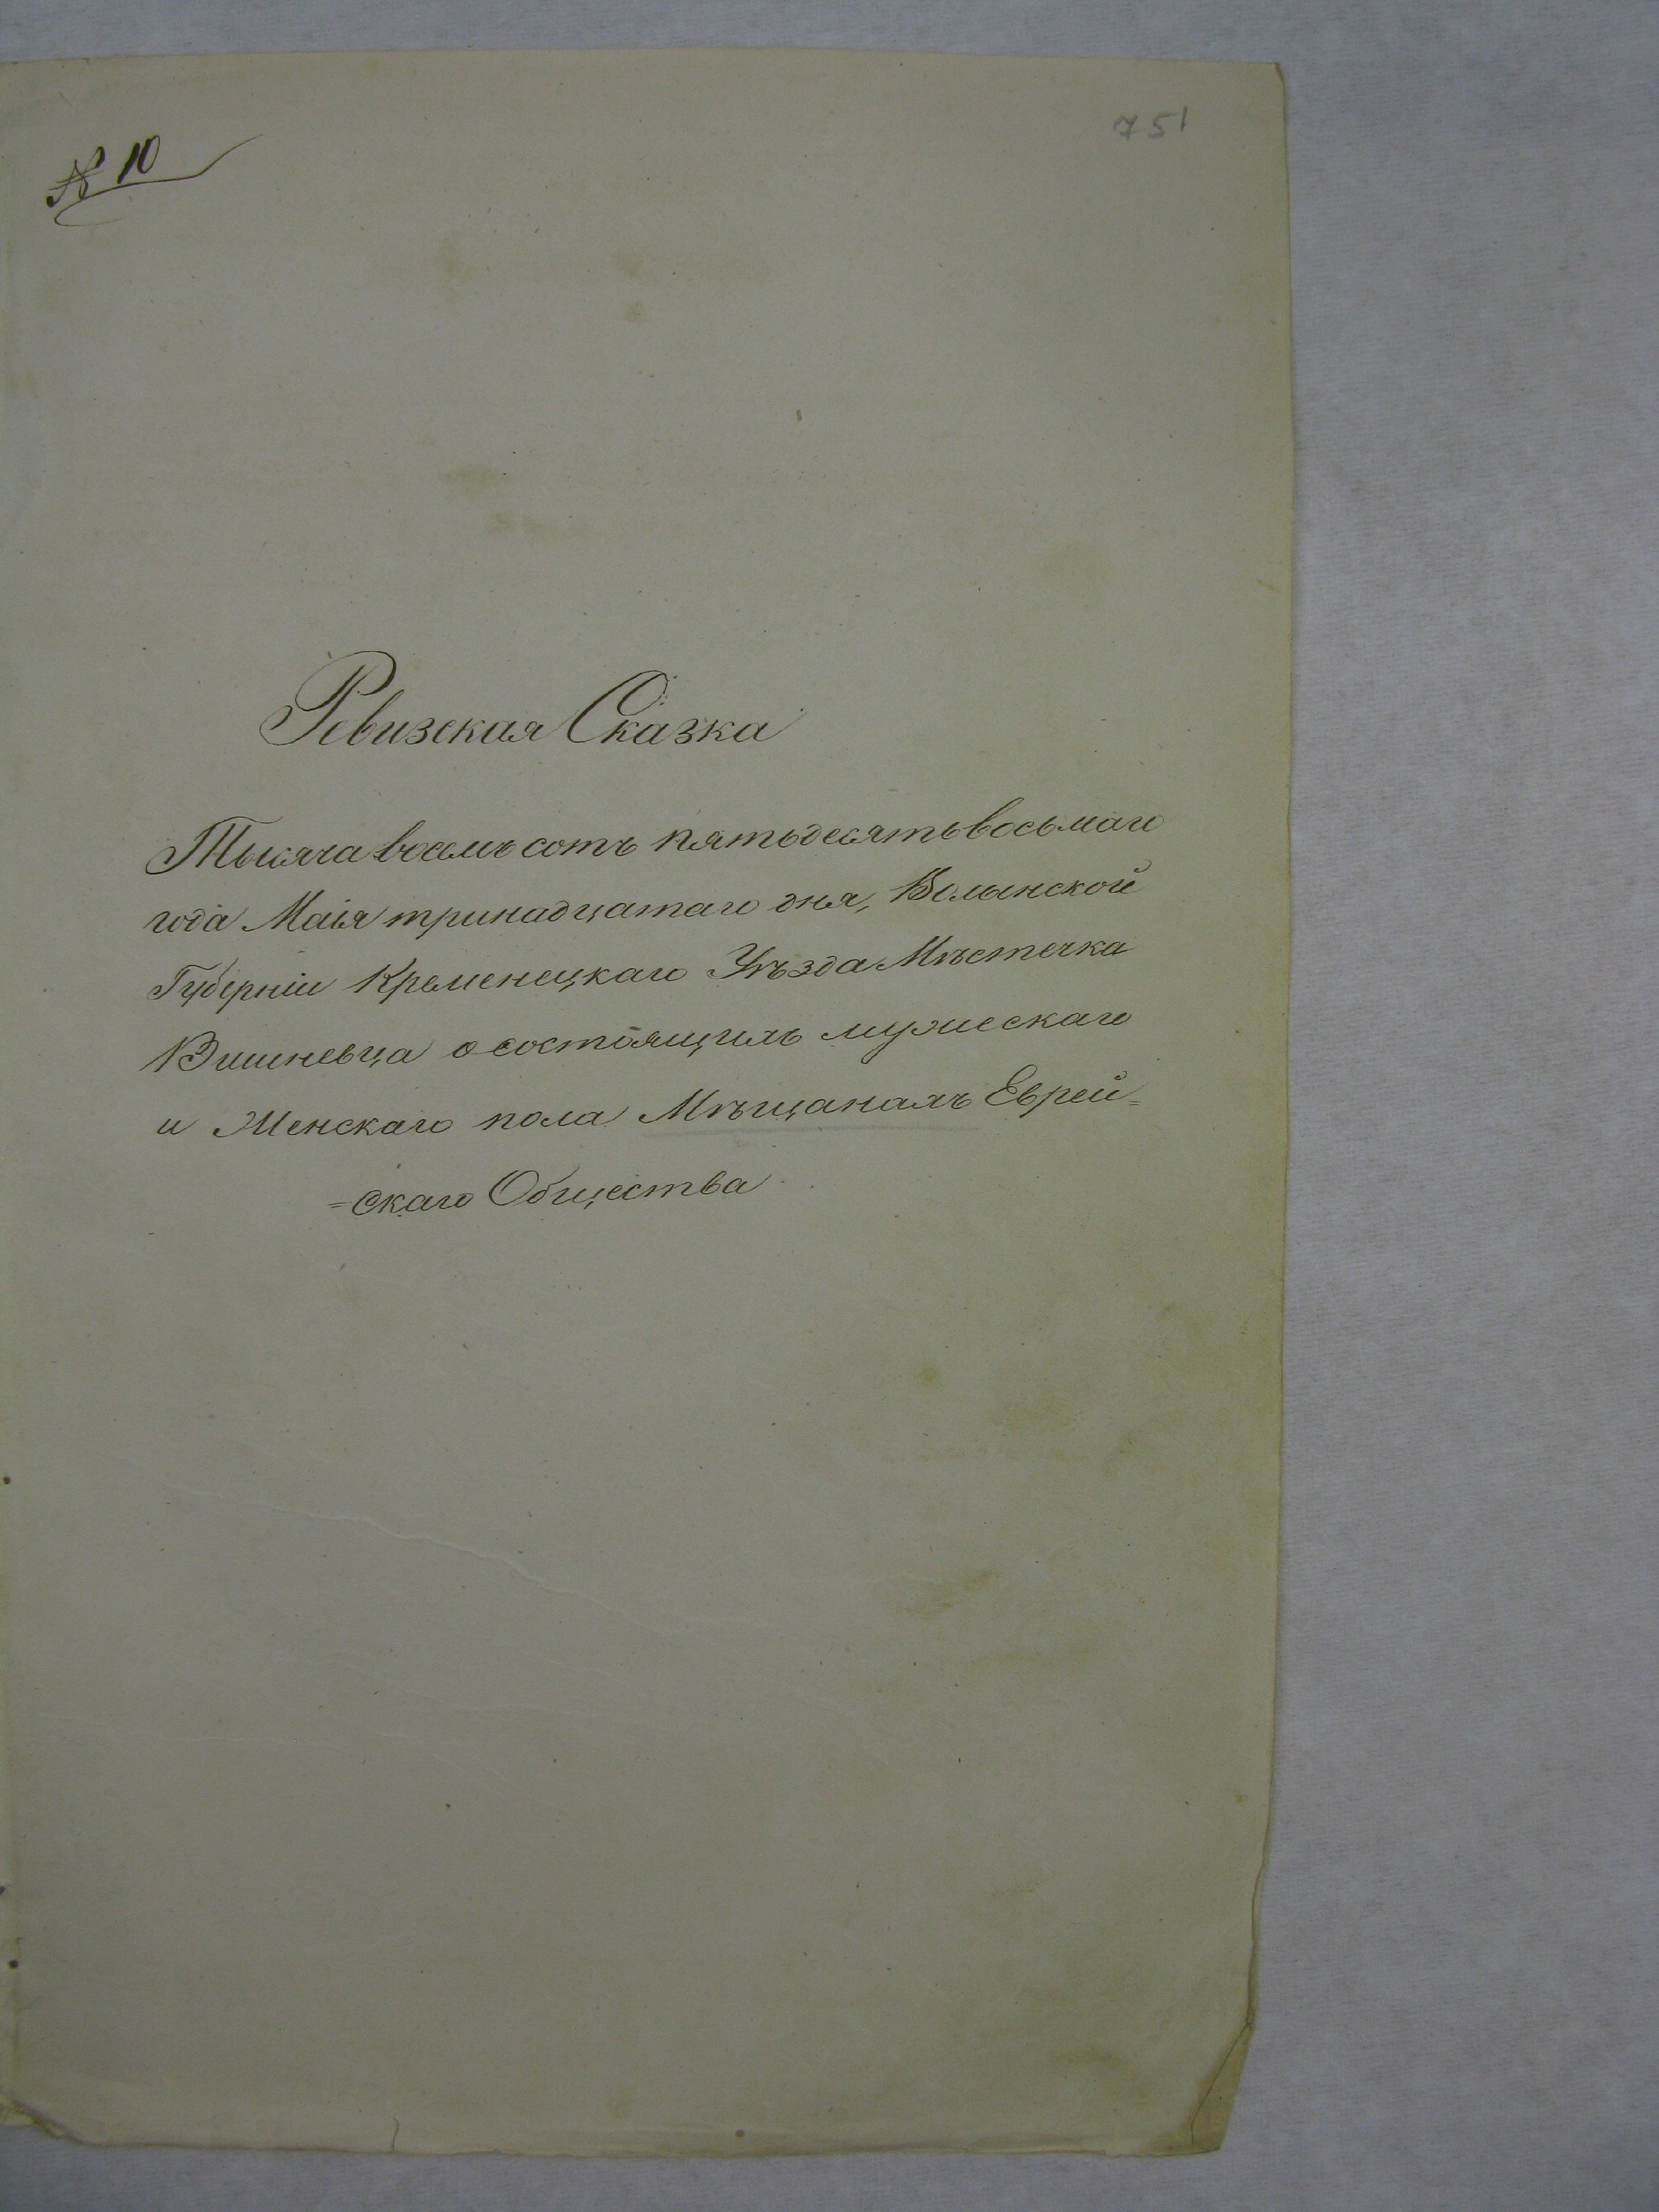 751
№ 10
Ревизская Сказка
Тысяча восемь сотъ пятьдесятъ восьмаго
года Маія тринадцатаго дня, Волынской
Губерніи Кременецкаго Уѣзда Мѣстечка
Вишневца о состоящихъ мужескаго
и Женскаго пола Мѣщанахъ Еврей=
=скаго Общества